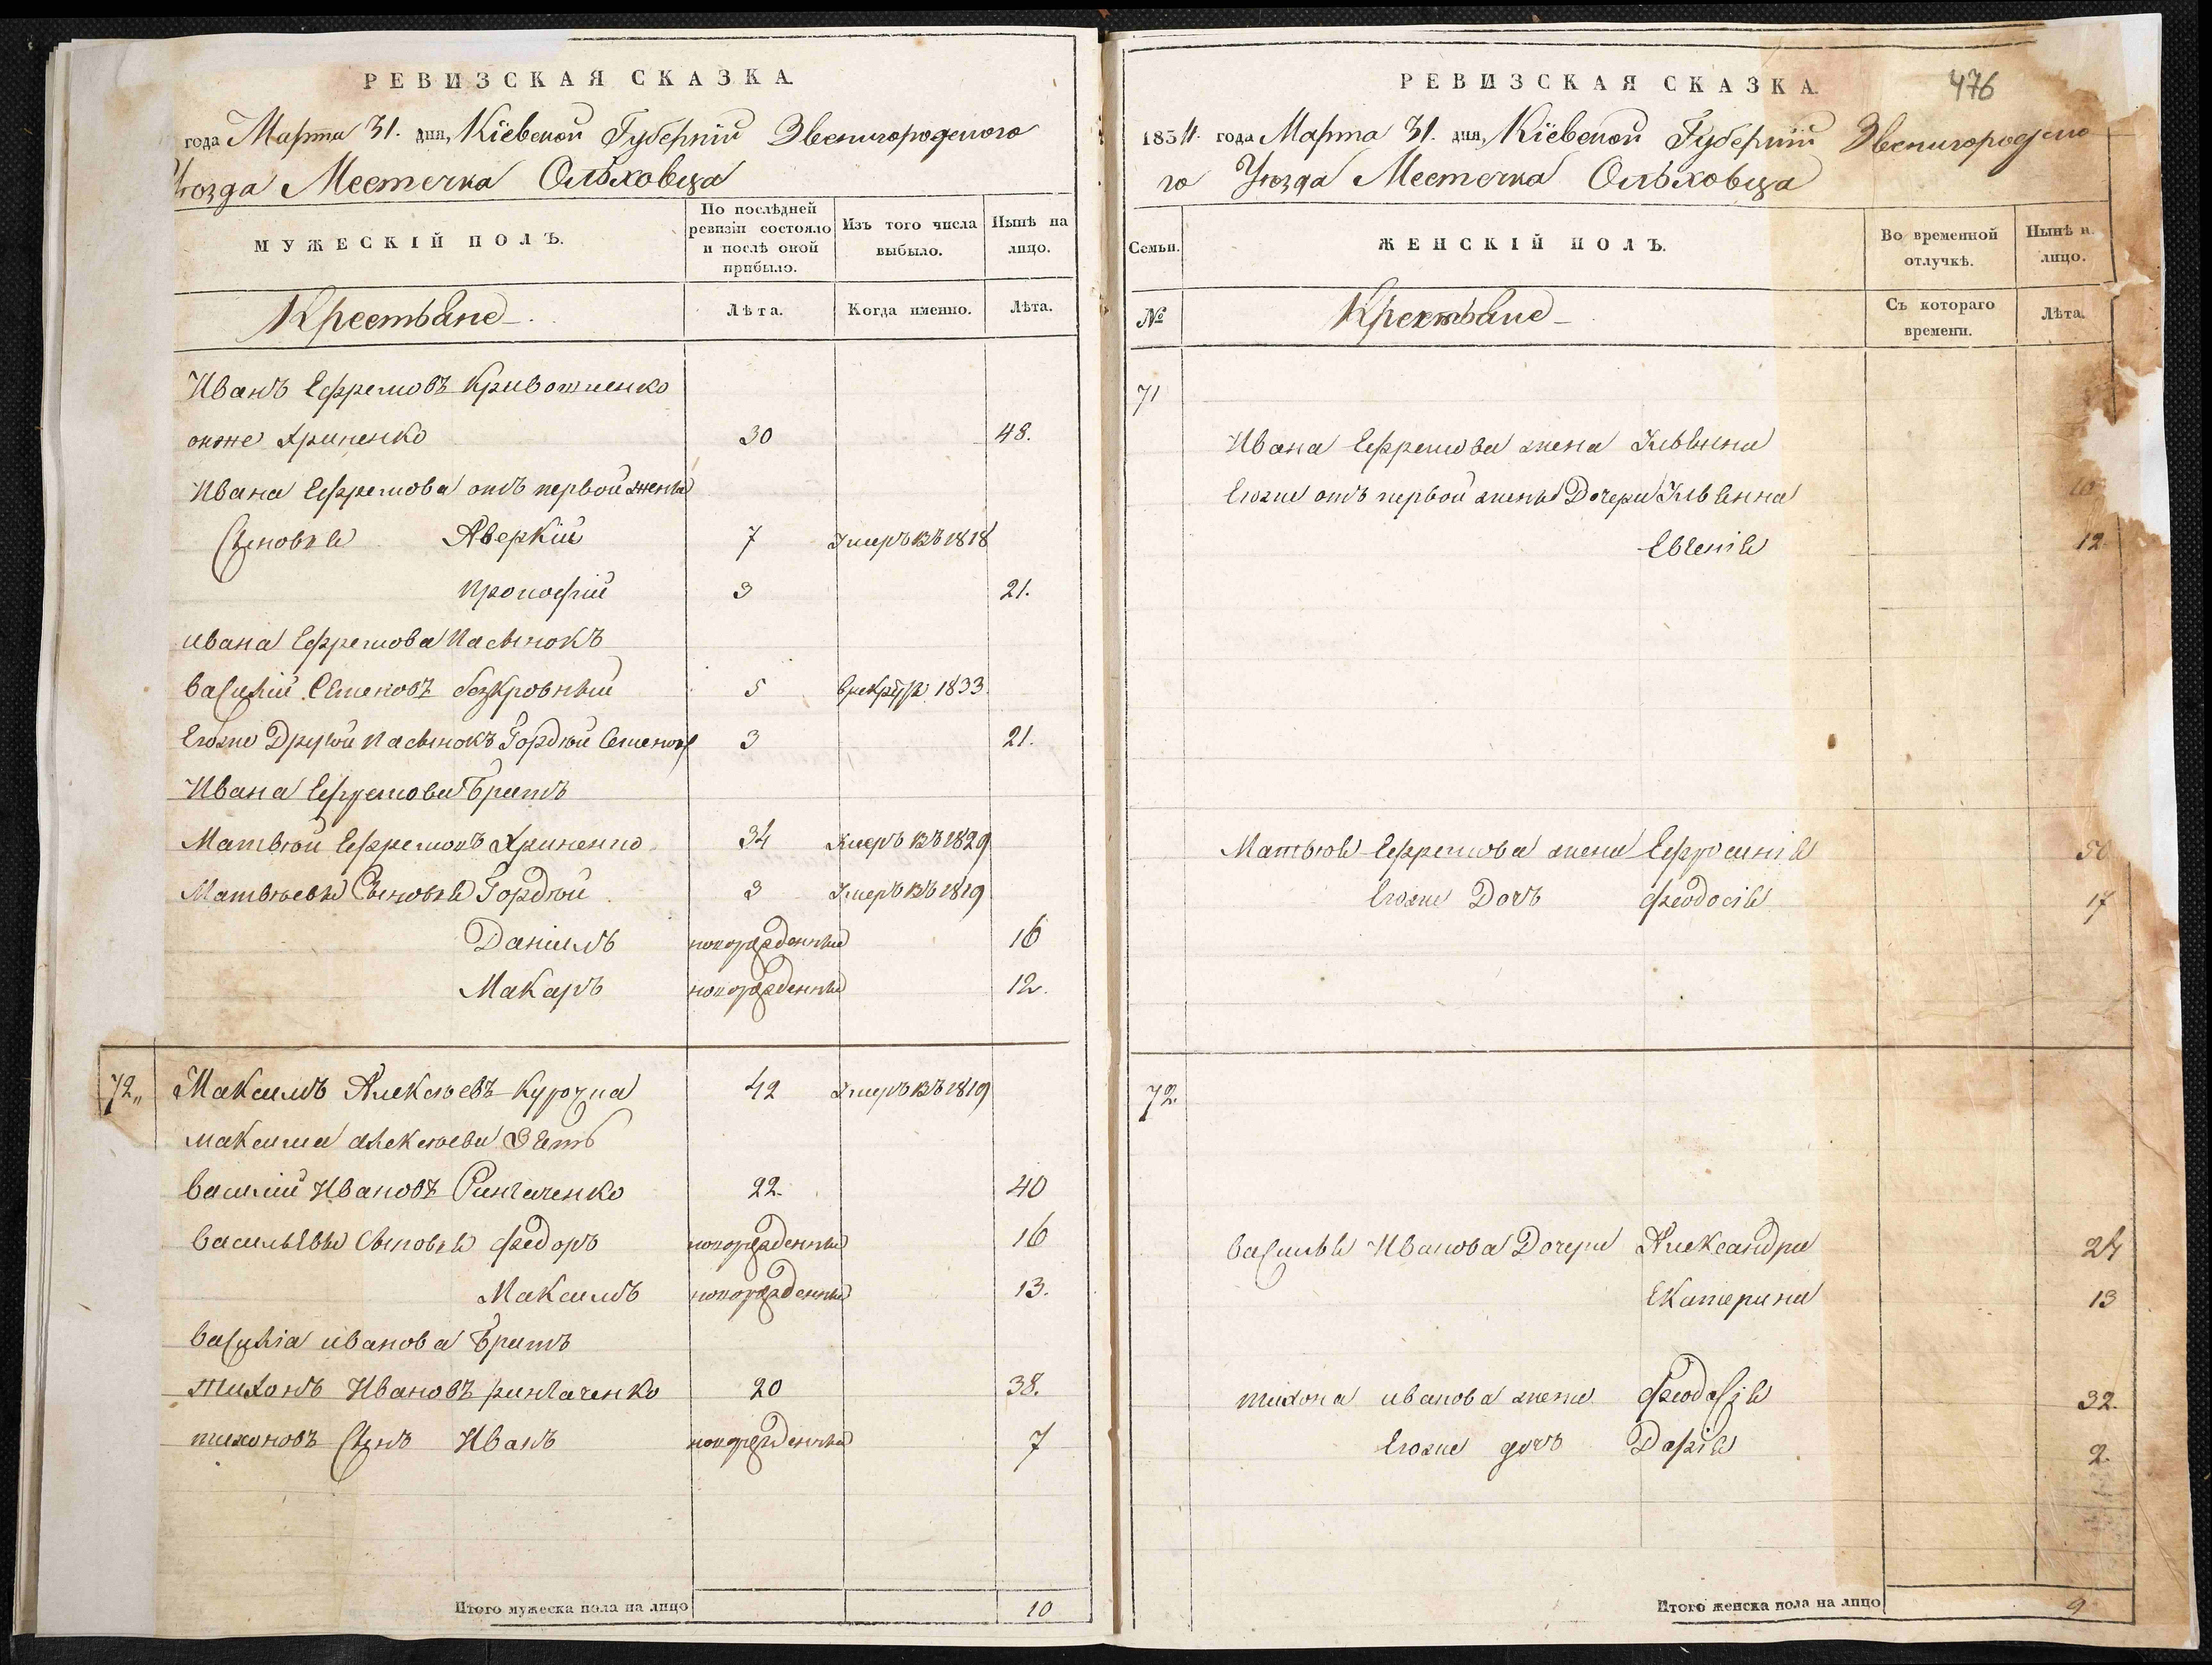 РЕВИЗСКАЯ СКАЗКА.
года Марта 31. дня, Кіевской Губерніи Звенигородского
Уѣзда Местечка Ольховца
МУЖЕСКІЙ ПОЛЪ.
По послѣдней ревизіи состояло и послѣ оной прибыло.
Изъ того числа выбыло.
Нынѣ на лицо.
Крестьяне
Лѣта.
Когда именно.
Лѣта.
Иванъ Ефремовъ
онже Хриненко 30 48.
Ивана Ефремова отъ первой жены
Сыновья Аверкій 7 Умеръ въ 1818
Прокофій 3 21.
Ивана Ефремова Пасынокъ
Василій Семеновъ безкровный 5 1833.
Егоже Другой Пасынокъ Гордѣй Семеновъ 3 21.
Ивана Ефремова Братъ
Матвѣй Ефремовъ Хриненко 34 Умеръ въ 1829
Матвѣевы Сыновья Гордѣй 3 Умеръ въ 1819
Даніилъ новорожденный 16
Макаръ новорожденный 12.
72" Максимъ Алексѣевъ Курочка 42 Умеръ въ 1819
Максима Алексѣева Зять
Василій Ивановъ 22. 40
Васильевы Сыновья Федоръ новорожденный 16
Максимъ новорожденный 13.
Василіа Иванова Братъ
Тихонъ Ивановъ 20 38.
Тихоновъ Сынъ Иванъ новорожденный 7
Итого мужеска пола на лицо 10
476
РЕВИЗСКАЯ СКАЗКА.
1834. года Марта 31. дня, Кіевской Губерніи Звенигородско
го Уѣзда Местечка Ольховца
Семьи.
ЖЕНСКІЙ ПОЛЪ.
Во временной отлучкѣ.
Нынѣ н. лицо.
№
Крестьяне
Съ котораго времени.
Лѣта.
71
Ивана Ефремова жена Ульяна
Егоже отъ первой жены Дочери Ульянна
Евгенія 12.
Матвѣя Ефремова жена Ефросинія 50
Егоже Дочь Феодосія 17
72.
Василья Иванова Дочери Александра 24
Екатерина 13
Тихона Иванова жена Феодосія 32.
Егоже дочь Дарія 2.
Итого женска пола на лицо 9